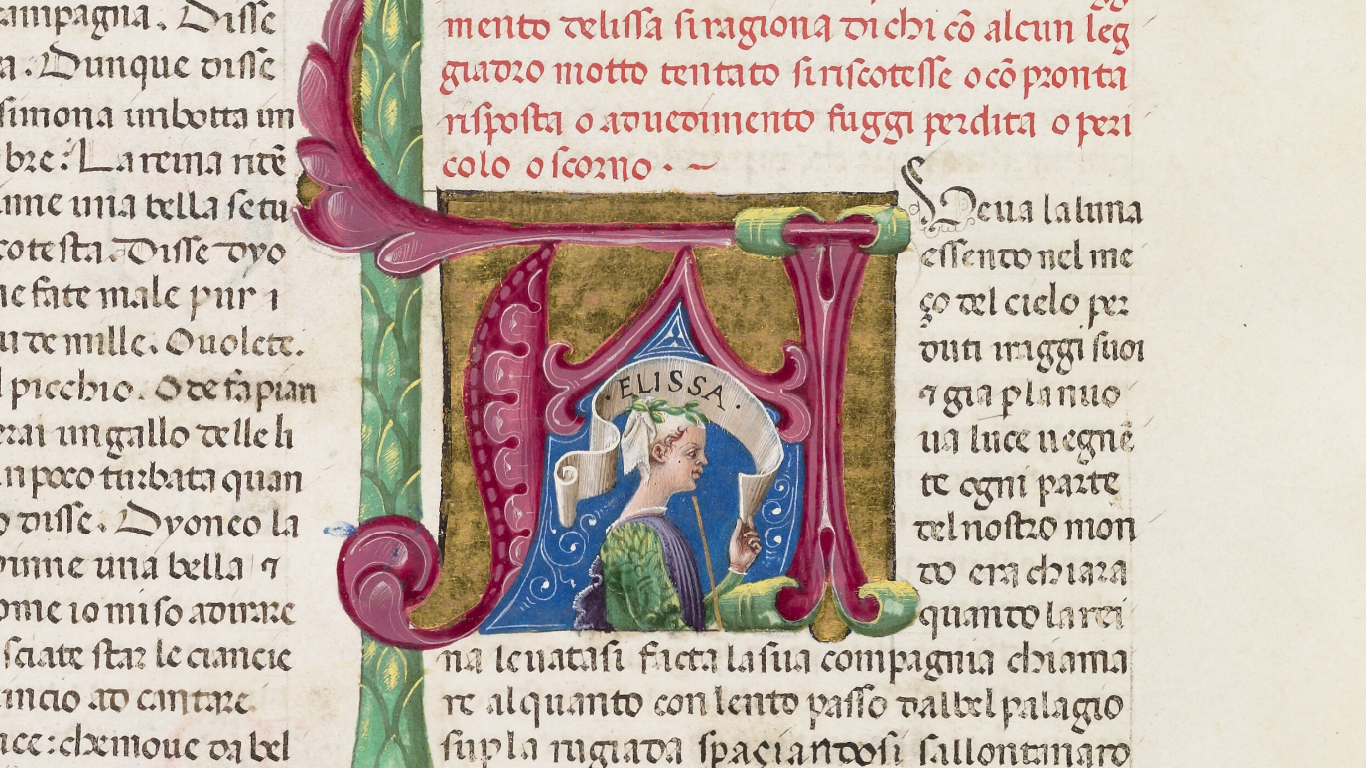 campagna. Disse
a. Dunque disse
simona imbotta un
bre: La reina ritē
une una bella setu
cotesta. Disse dyo
ne fate male pur ⁊
ui de mille. O uolete.
l picchio. O de fa pian
erai un gallo delle li
n poco turbata quan
o disse. Dyoneo la
inne una bella ⁊
ome io mi so adirare
sciate star le ciancie
incio ad cantare
ace: che moue da bel
mento delissa si ragiona di chi cō alcun leg
giadro motto tentato si riscotesse o cō pronta
risposta o aduedimento fuggi perdita o peri
colo o scorno.
·ELISSA·
Heua la luna
essento nel me
ço del cielo per
duti iraggi suoi
⁊ gia p la nuo
ua luce uegnē
te ogni parte
del nostro mon
do era chiara
quando la rei
na leuatasi facta la sua compagnia chiama
re alquanto con lento passo dal bel palagio
sup la rugiada spaciandosi sallontanaro